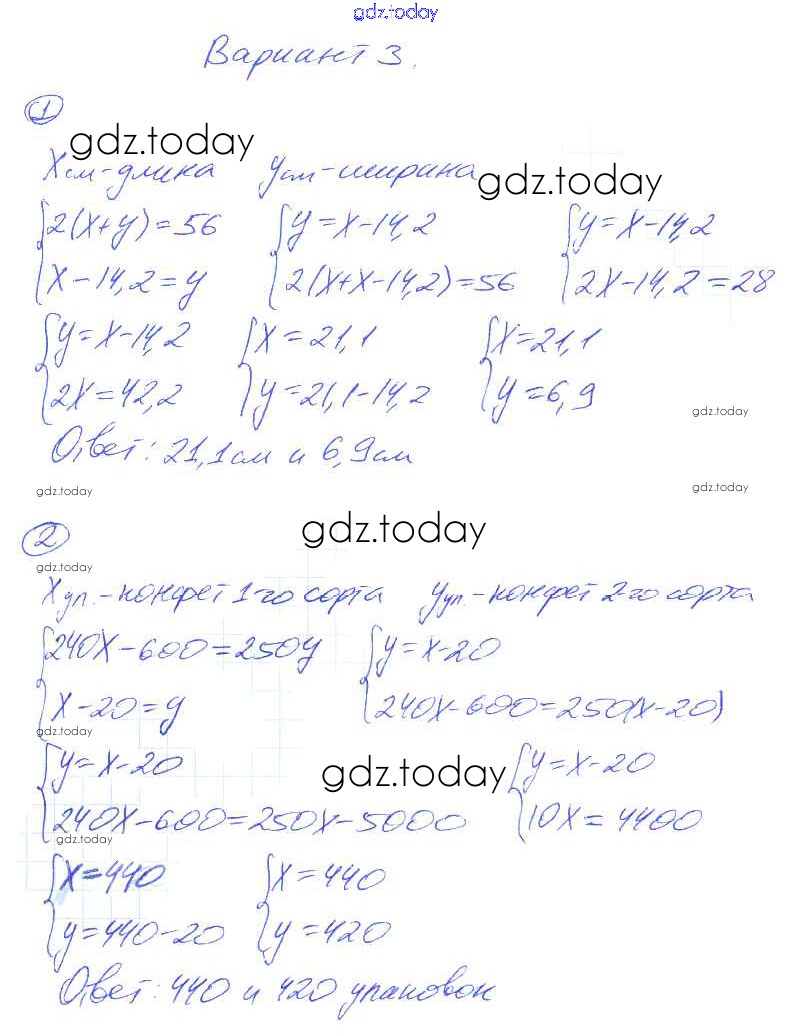 gdz.today
Вариант 3.
1
gdz.today
X см - длина y см - ширина
gdz.today
{2(x+y)=56 {y=x-14,2 {y=x-14,2
x-14,2=y 2(x+x-14,2)=56 2x-14,2=28
{y=x-14,2 {x=21,1 {x=21,1
2x=42,2 y=21,1-14,2 y=6,9
gdz.today
Ответ: 21,1см и 6,9см
gdz.today gdz.today
2 gdz.today
gdz.today
X уп. - конфет 1-го сорта y уп. - конфет 2-го сорта
{240x-600=250y {y=x-20
x-20=y 240x-600=250(x-20)
gdz.today
{y=x-20 gdz.today {y=x-20
240x-600=250x-5000 10x=4400
gdz.today
{x=440 {x=440
y=440-20 y=420
Ответ: 440 и 420 упаковок